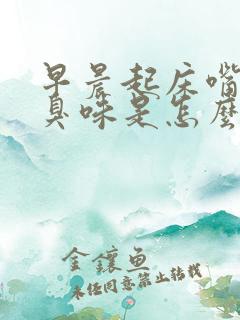 早晨起床嘴
臭味是怎麼
金鑲魚
未经同意禁止转载